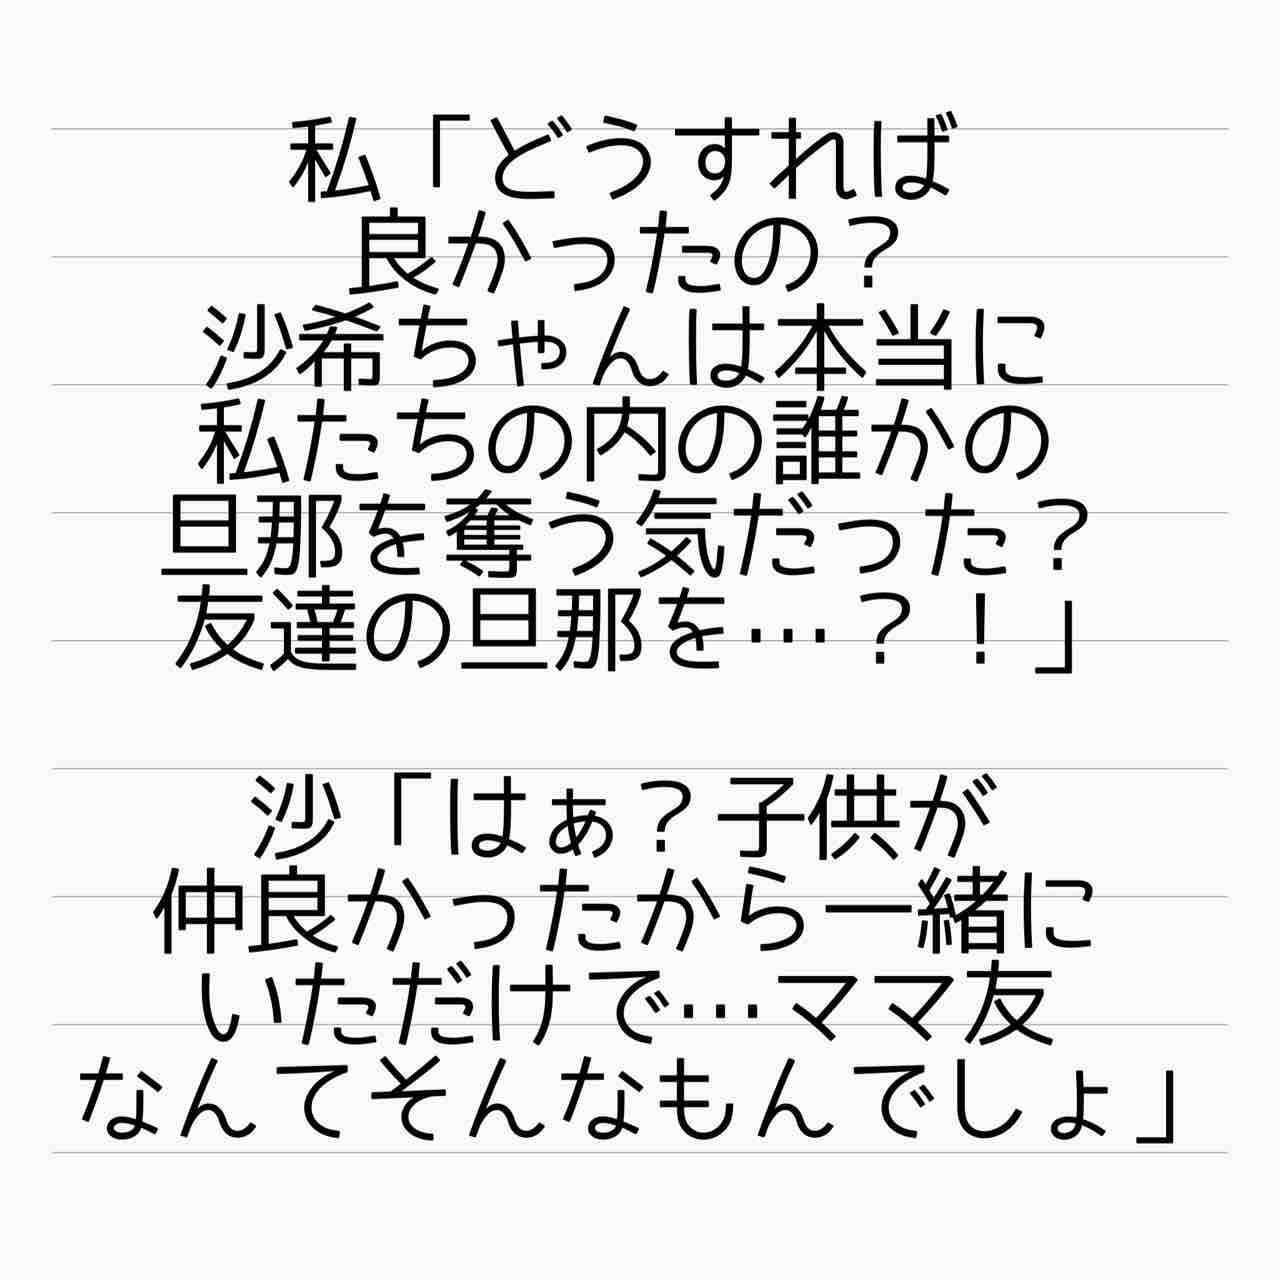 私「どうすれば
良かったの？
沙希ちゃんは本当に
私たちの内の誰かの
旦那を奪う気だった？
友達の旦那を…？！」
沙「はぁ？子供が
仲良かったから一緒に
いただけで…ママ友
なんてそんなもんでしょ」